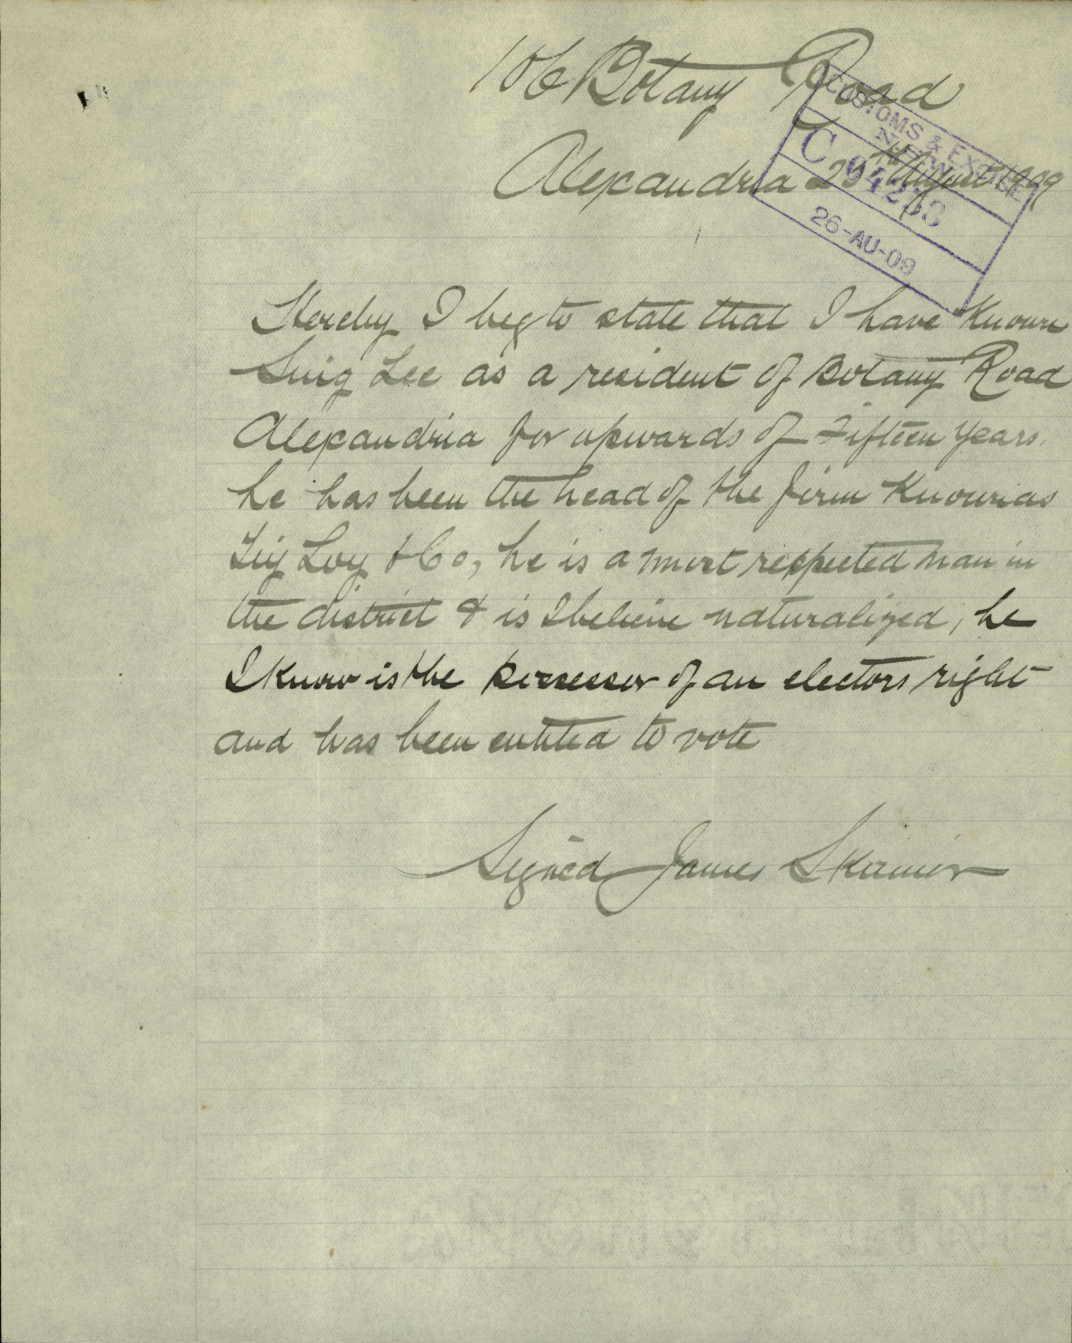 106 Botany Road
Alexandria 25th August 1909
CUSTOMS & EXCISE
N.S.W.
C 09
26-AU-09
Hereby I beg to state that I have Known
Sing Lee as a resident of Botany Road
Alexandria for upwards of Fifteen years.
he has been the head of the firm Known as
Loy & Co, he is a most respected man in
the district & is I believe naturalized, he
I Know is the possessor of an electors right
and has been entitled to vote
Signed James Skinner